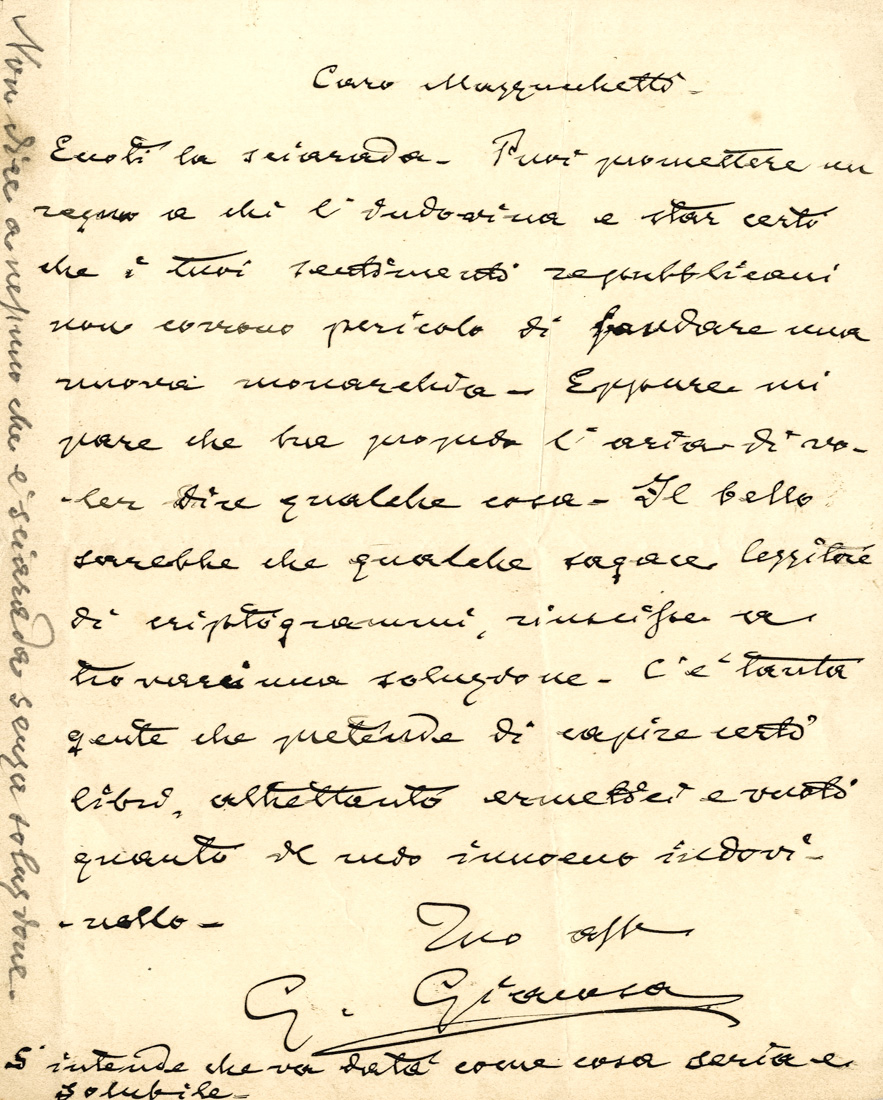 Caro Mazzucchetti -
Eccoti la sciarada - Puoi promettere un
regno a chi l'indovina e star certo
che i tuoi sentimenti repubblicani
non corrono pericolo di fondare una
nuova monarchia - Eppure mi
pare che ha proprio l'aria di vo-
-ler dire qualche cosa - Il bello
sarebbe che qualche sagace leggitore
di criptogrammi, riuscisse a
trovarci una soluzione - C'è tanta
gente che pretende di capire certi
libri, altrettanto ermetici e vuoti
quanto il mio innocuo indovi-
-nello -
Tuo aff
G. Giacosa
S'intende che va data come cosa seria e
solubile -
Non dire a nessuno che è sciarada senza soluzione.